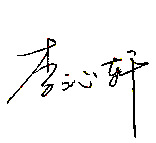 李沁轩